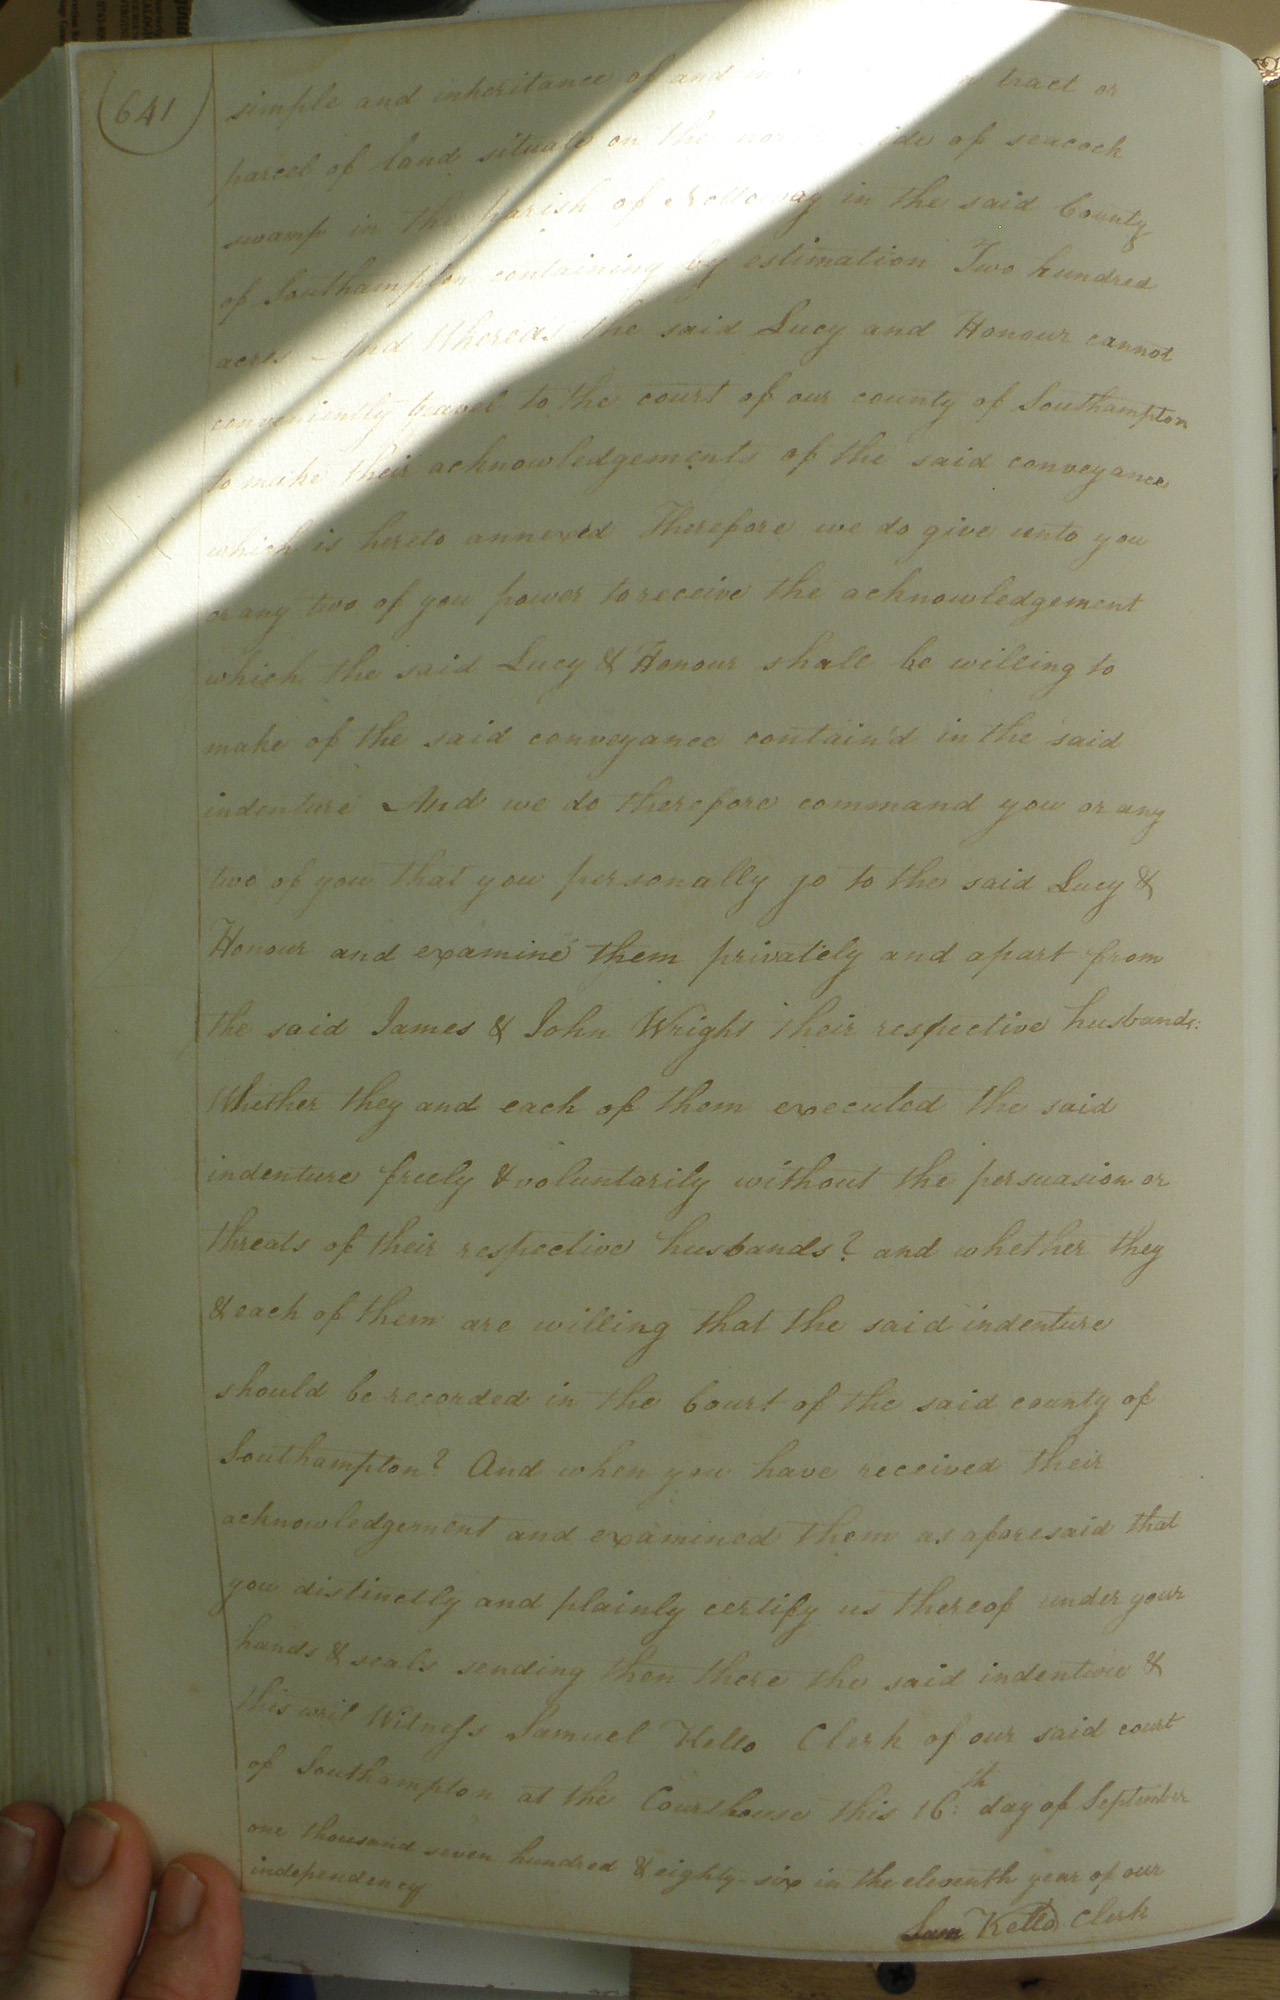 641
simple and inheritance of and in a tract or
parcel of land situate on the side of seacock
swamp in the parish of Nottoway in the said County
of Southampton containing by estimation Two hundred
acres – And Whereas the said Lucy and Honour cannot
conveniently travel to the court of our county of Southampton
to make their acknowledgements of the said conveyance
which is hereto annexed Therefore we do give unto you
or any two of you power to receive the acknowledgement
which the said Lucy & Honour shall be willing to
make of the said conveyance contain'd in the said
indenture And we do therefore command you or any
two of you that you personally go to the said Lucy &
Honour and examine them privately and apart from
the said James & John Wright their respective husbands:
Whether they and each of them executed the said
indenture freely & voluntarily without the persuasion or
threats of their respective husbands? and whether they
& each of them are willing that the said indenture
should be recorded in the Court of the said county of
Southampton? And when you have received their
acknowledgement and examined them as aforesaid that
you distinctly and plainly certify us thereof under your
hands & seals sending then there the said indenture &
this writ Witness Samuel Kello Clerk of our said court
of Southampton at the Courthouse this 16:th day of September
one thousand seven hundred & eighty-six in the eleventh year of our
independency
Sam Kello Clerk